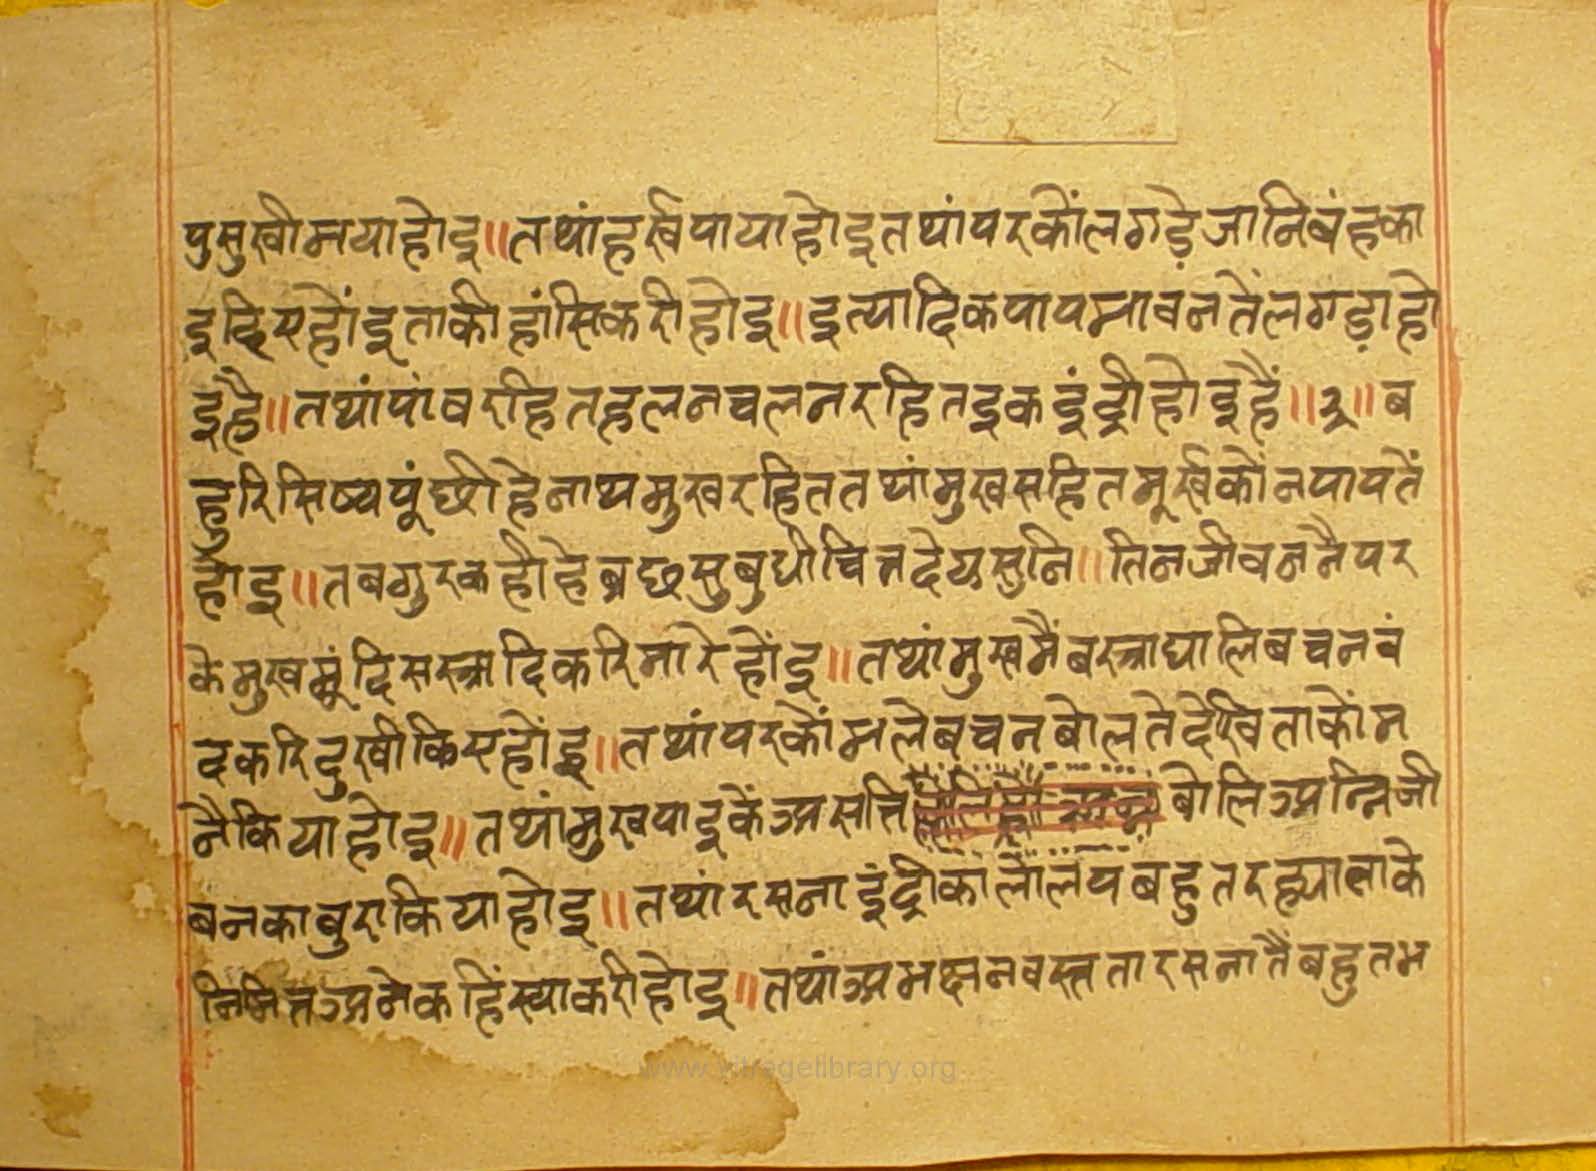 पुसुखीभयाहोइ॥तथांहर्खपायाहोइतथांपरकोंलगड़ेजानिबंहका
इहिएहोंइताकीहांसिकरीहोइ॥इत्यादिकपापभावनतेंलगड़ाहो
इहै॥तथांपांवरहितहलनचलनरहितइकइंद्रीहोइहैं॥२॥ब
हुरिसिष्यपूंछीहेनाथमुखरहिततथांमुखसहितमूर्खकोंनपापतें
होइ॥तबगुरकहीहेब्रछसुबुधीचित्तदेयसुनि॥तिनजीवननैपर
केमुखमूंदिसस्त्रादिकरिमारेहोंइ॥तथांमुखमैंबस्त्राघालिबचनबं
दकरिदुखीकिएहोंइ॥तथांपरकोंभलेबचनबोलतेदेखिताकोंम
नैकियाहोइ॥तथांमुखपाइकेंअसत्ति बोलिअन्निजी
बनकाबुराकियाहोइ॥तथांरसनाइंद्रीकालोलपबहुतरह्याताके
निमित्तअनेकहिंस्याकरीहोइ॥तथांअभक्षनवस्ततारसनातैंबहुतभ
www.vitragelibrary.org